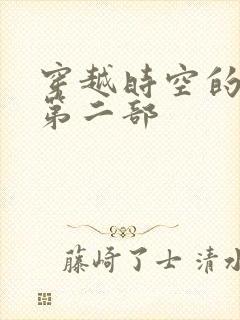 穿越時空的
第二部
藤崎了士 清水